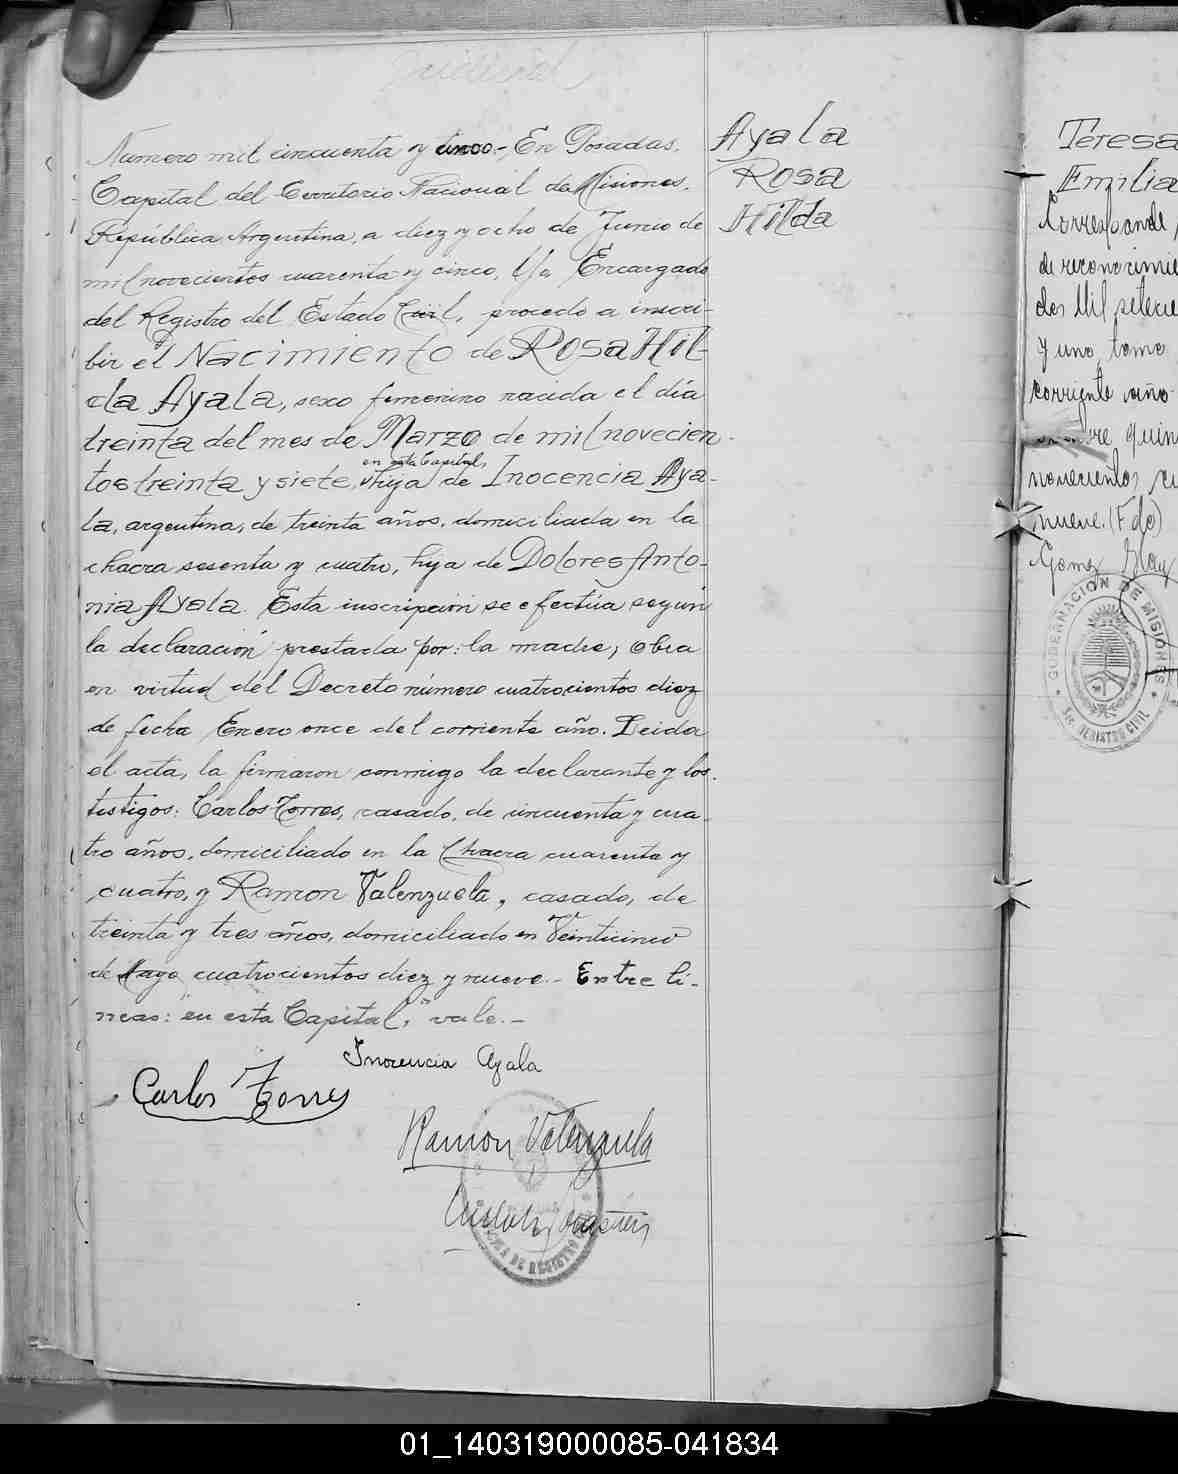 Judicial
Numero mil cincuenta y cinco.- En Posadas,
Capital del Territorio Nacional de Misiones,
República Argentina, a diez y ocho de Junio de
mil novecientos cuarenta y cinco, Yo Encargado
del Registro del Estado Civil, procedo a inscri-
bir el Nacimiento de Rosa Hil-
da Ayala, sexo femenino nacida el día
treinta del mes de Marzo de mil novecien-
tos treinta y siete, en esta Capital, hija de Inocencia Aya-
la, argentina, de treinta años, domiciliada en la
chacra sesenta y cuatro, hija de Dolores Anto-
nia Ayala. Esta inscripción se efectúa según
la declaración prestada por: la madre; obra
en virtud del Decreto número cuatrocientos diez
de fecha Enero once del corriente año. Leida
el acta, la firmaron conmigo la declarante y los
testigos: Carlos Torres, casado, de cincuenta y cua-
tro años, domiciliado en la Chacra cuarenta y
cuatro, y Ramon Valenzuela, casado, de
treinta y tres años, domiciliado en Veinticinco
de Mayo cuatrocientos diez y nueve.- Entre lí-
neas: "en esta Capital," vale.-
Inocencia Ayala
Carlos Torres
Ramon Valenzuela
DE REGISTRO
Ayala
Rosa
Hilda
Teresa
Emilia
Corresponde
de reconocimie
dos Mil setecie
y uno, tomo
corriente año
quin
novecientos cu
nueve. (Fdo)
Gomez
GOBERNACION DE MISIONES
REGISTRO CIVIL
01_140319000085-041834